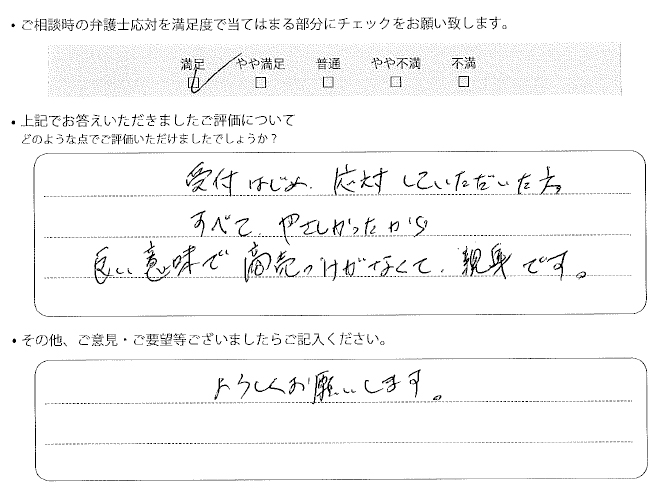 ・ご相談時の弁護士応対を満足度で当てはまる部分にチェックをお願い致します。
満足 やや満足 普通 やや不満 不満
・上記でお答えいただきましたご評価について
どのような点でご評価いただけましたでしょうか？
受付はじめ、応対していただいた方
すべて、やさしかったから
良い意味で商売っけがなくて、親身です。
・その他、ご意見・ご要望等ございましたらご記入ください。
よろしくお願いします。